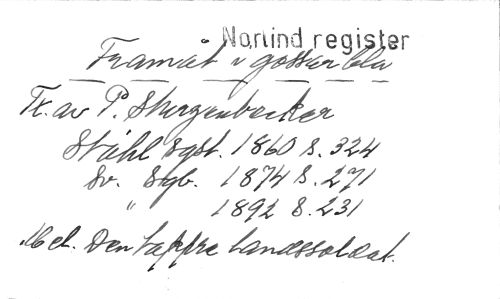 Norlind register
Framåt i gossar blå
Tx. av P. Sturzenbecker
Ståhl Sgst. 1860 s. 324
Sv. Sgb. 1874 s. 271
" 1892 s. 231
Mel. Den tappre Landssoldat.